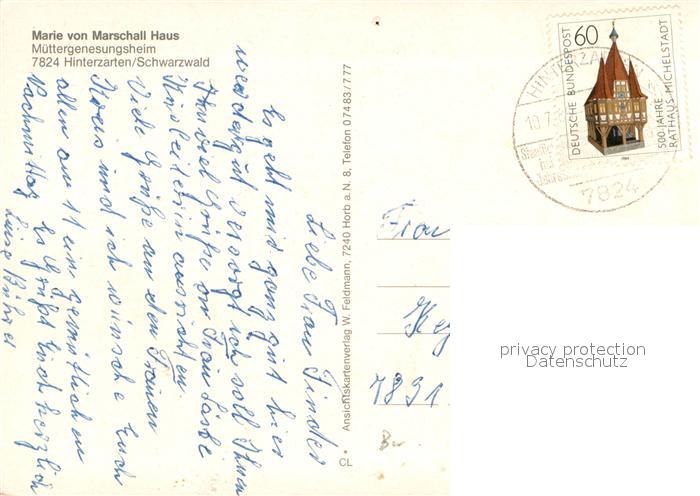 Marie von Marschall Haus
Müttergenesungsheim
7824 Hinterzarten/Schwarzwald
Liebe Frau Finder
Es geht mir ganz gut hier
werde gut versorgt soll Ihnen
viel Grüße von Frau
Heimleiterin ausrichten.
Viele Grüße an den Frauen
Kreis und ich wünsche Euch
allen am 11 ein gemütlichen
Nachmittag Es Grüßt Euch herzlich
Luise
Ansichtskartenverlag W. Feldmann, 7240 Horb a. N. 8, Telefon 07483/777
CL
DEUTSCHE BUNDESPOST
60
500 JAHRE
RATHAUS MICHELSTADT
1984
HINTERZA
10.7.
7824
Frau
7891
privacy protection
Datenschutz